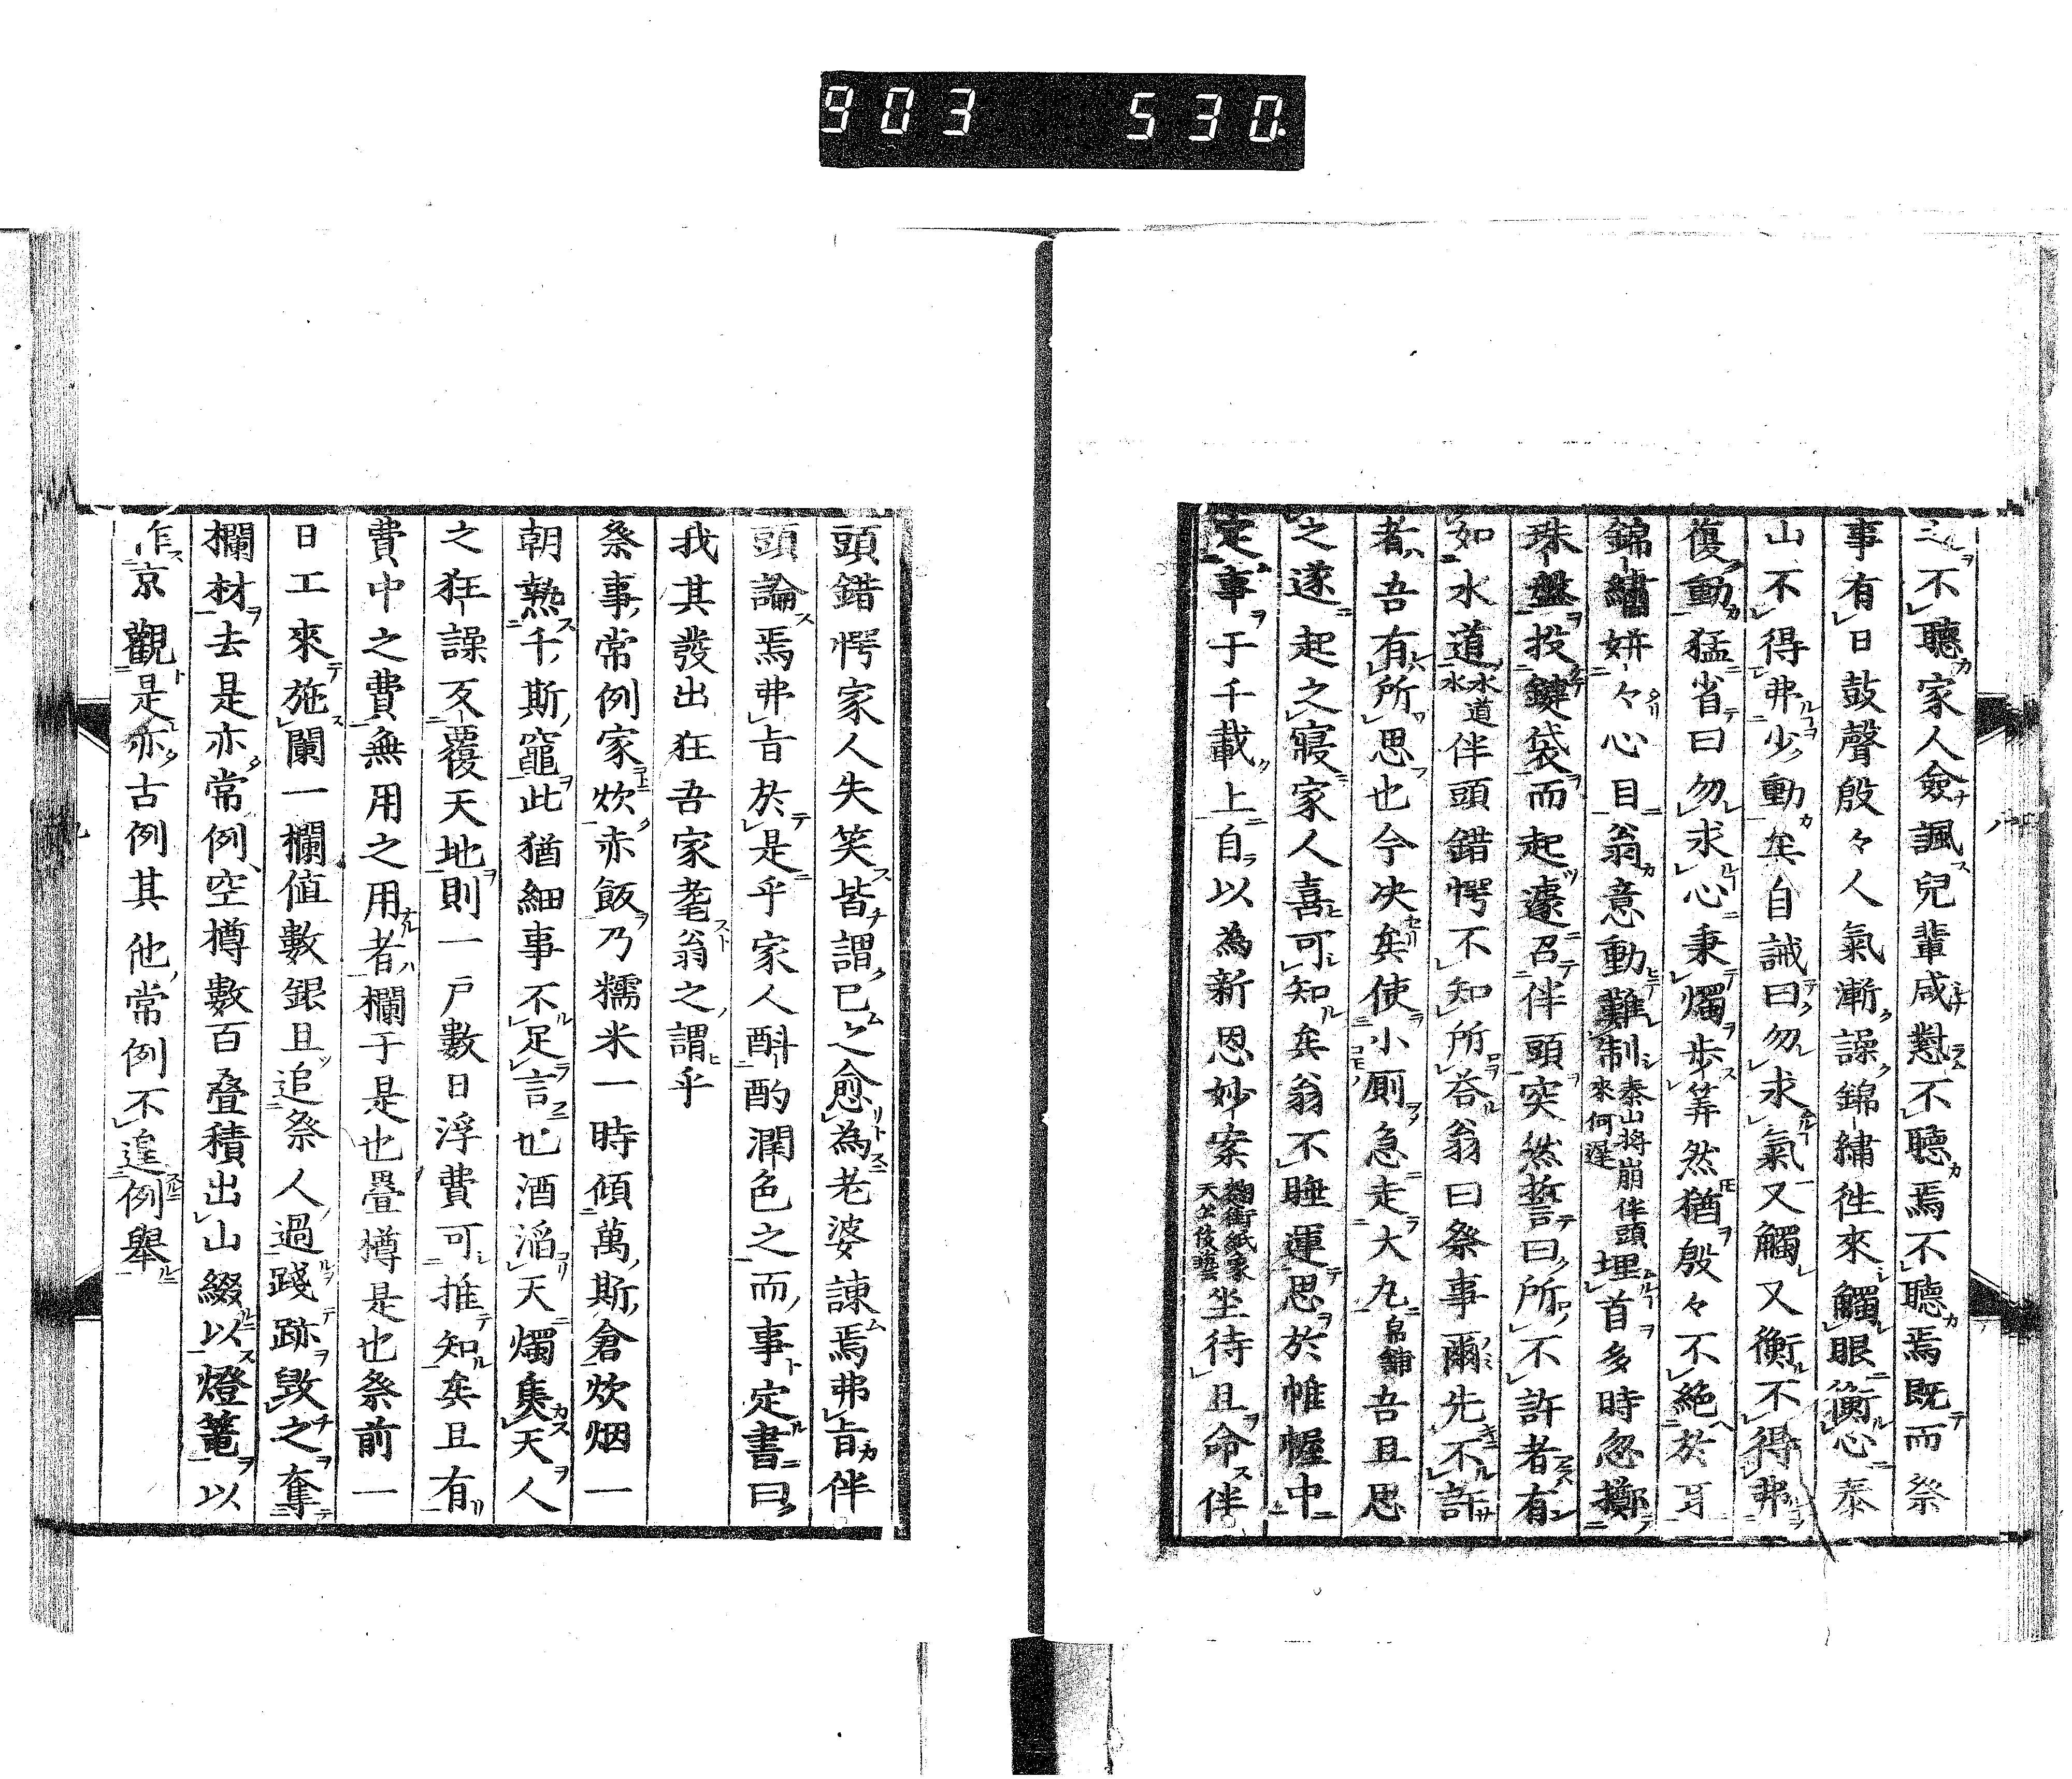 903 530
三不聽家人僉諷兒輩咸懟不聽焉不聽焉既而祭
事有日鼓聲殷々人氣漸譟錦繡徃來觸眼衡心泰
山不得弗少動矣自誡曰勿求氣又觸又衡不得弗
復動猛省曰勿求心秉燭歩筭然猶殷々不絕於耳
錦繡姸々心目翁意動難制泰山將崩伴頭來何遅埋首多時忽擲
珠盤投鍵袋而起遽召伴頭突然誓曰所不許者有
如水道水道水伴頭錯愕不知所荅翁曰祭事爾先不許
者吾有所思也今决矣使小厠急走大丸帛舗吾且思
之遂起之寢家人喜可知矣翁不睡運思於帷幄中
定事于千載上自以為新恩妙案麹街紙象天公後藝坐待旦命伴
頭錯愕家人失笑皆謂已之愈為老婆諫焉弗旨伴
頭論焉弗旨於是乎家人斟酌潤色之而事定書曰
我其發出狂吾家耄翁之謂乎
祭事常例家炊赤飯乃糯米一時傾萬斯倉炊烟一
朝熱千斯竈此猶細事不足言也酒滔天燭集天人
之狂譟反覆天地則一戸數日浮費可推知矣且有
費中之費無用之用者欄于是也疊樽是也祭前一
日工來施闌一欄値數銀且追祭人過踐跡毀之奪
欄材去是亦常例空樽數百叠積出山綴以燈篭以
作京觀是亦古例其他常例不遑例舉